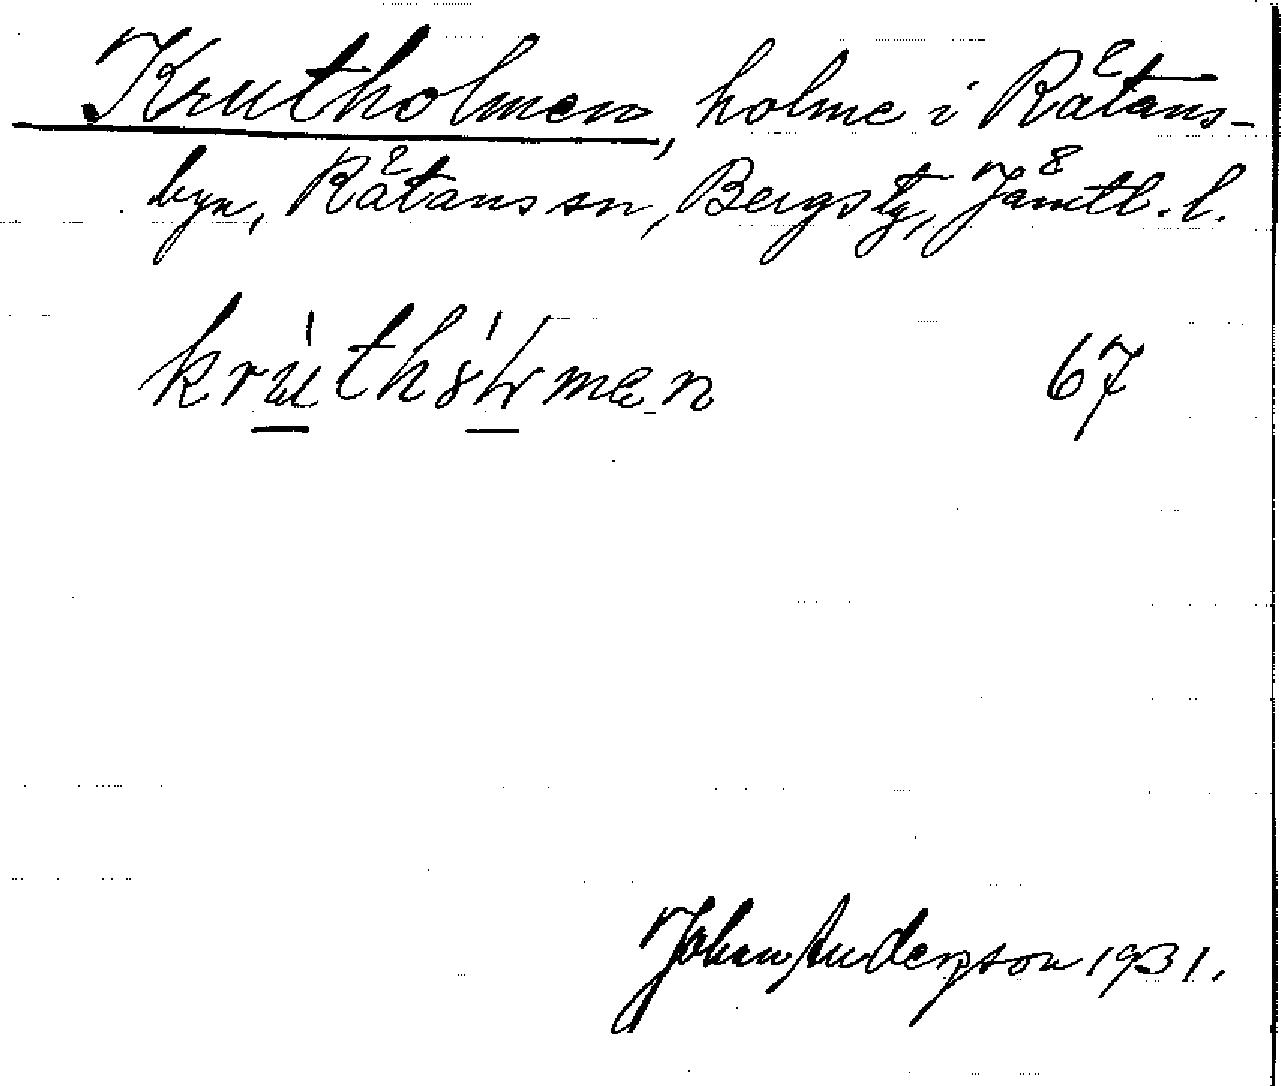 Krutholmen, holme i Råtans-
byn, Råtans sn, Bergs tg, Jämtl. l.
67
Johan Anderson 1931.